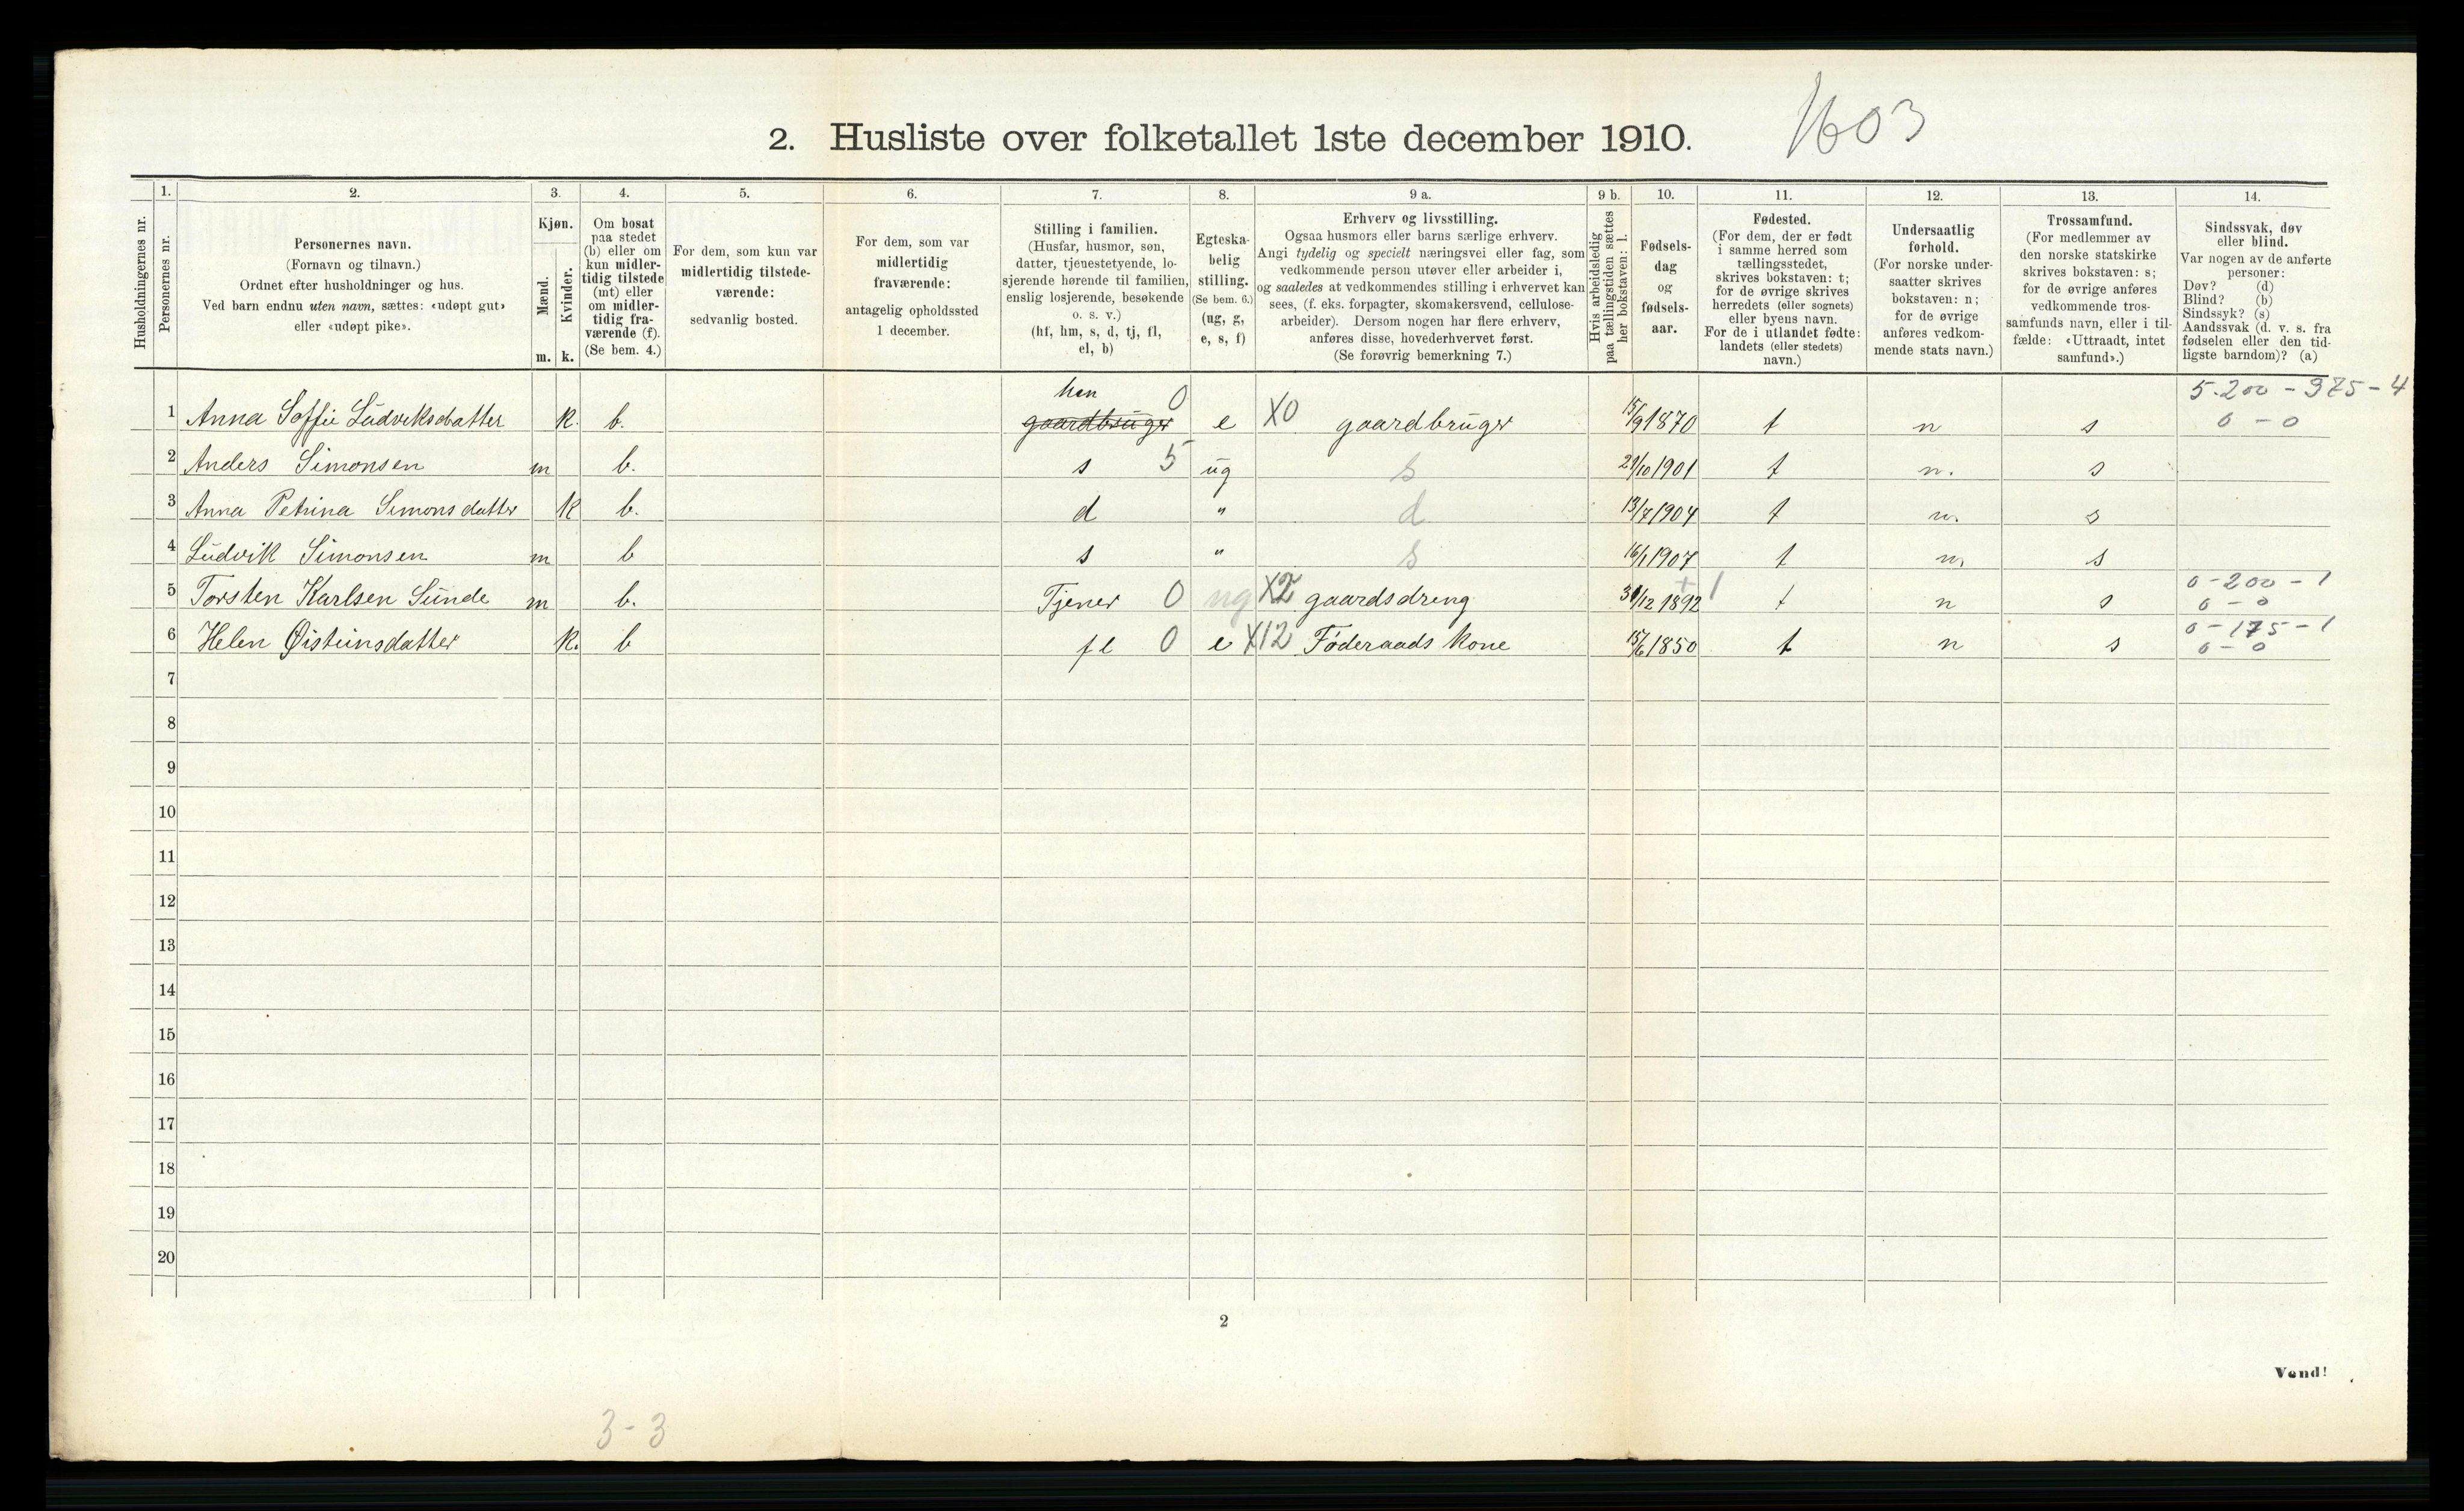 2. Husliste over folketallet 1ste december 1910. 1603
1. 2. 3. 4. 5. 6. 7. 8. 9 a. 9 b. 10. 11. 12. 13. 14.
Husholdningernes nr.
Personernes nr.
Personernes navn.
(Fornavn og tilnavn.)
Ordnet efter husholdninger og hus.
Ved barn endnu uten navn, sættes: «udøpt gut»
eller «udøpt pike».
Kjøn.
Mænd.
Kvinder.
m. k.
Om bosat
paa stedet
(b) eller om
kun midler-
tidig tilstede
(mt) eller
om midler-
tidig fra-
værende (f).
(Se bem. 4.)
For dem, som kun var
midlertidig tilstede-
værende:
sedvanlig bosted.
For dem, som var
midlertidig
fraværende:
antagelig opholdssted
1 december.
Stilling i familien.
(Husfar, husmor, søn,
datter, tjenestetyende, lo-
sjerende hørende til familien,
enslig losjerende, besøkende
o. s. v.)
(hf, hm, s, d, tj, fl,
el, b)
Egteska-
belig
stilling.
(Se bem. 6.)
(ug, g,
e, s, f)
Erhverv og livsstilling.
Ogsaa husmors eller barns særlige erhverv.
Angi tydelig og specielt næringsvei eller fag, som
vedkommende person utøver eller arbeider i,
og saaledes at vedkommendes stilling i erhvervet kan
sees, (f. eks. forpagter, skomakersvend, cellulose-
arbeider). Dersom nogen har flere erhverv,
anføres disse, hovederhvervet først.
(Se forøvrig bemerkning 7.)
Hvis arbeidsledig
paa tællingstiden sættes
her bokstaven: l.
Fødsels-
dag
og
fødsels-
aar.
Fødested.
(For dem, der er født
i samme herred som
tællingsstedet,
skrives bokstaven: t;
for de øvrige skrives
herredets (eller sognets)
eller byens navn.
For de i utlandet fødte:
landets (eller stedets)
navn.)
Undersaatlig
forhold.
(For norske under-
saatter skrives
bokstaven: n;
for de øvrige
anføres vedkom-
mende stats navn.)
Trossamfund.
(For medlemmer av
den norske statskirke
skrives bokstaven: s;
for de øvrige anføres
vedkommende tros-
samfunds navn, eller i til-
fælde: «Uttraadt, intet
samfund».)
Sindssvak, døv
eller blind.
Var nogen av de anførte
personer:
Døv? (d)
Blind? (b)
Sindssyk? (s)
Aandssvak (d. v. s. fra
fødselen eller den tid-
ligste barndom)? (a)
hm 0 5-200-375-4
1 Anna Soffie Ludviksdatter k. b. gaardbruger e X0 gaardbruger 15/9 1870 t n s 0-0
2 Anders Simonsen m b. s 5 ug s 29/10 1901 t n. s
3 Anna Petrina Simonsdatter k b. d " d 13/7 1904 t n. s
4 Ludvik Simonsen m b s " s 16/1 1907 t n. s
0-200-1
5 Torsten Karlsen Sunde m b. Tjener 0 ug X2 gaardsdreng 31/12 1892 + 1 t n s 0-0
0-175-1
6 Helen Øisteinsdatter k. b fl 0 e X12 Føderaads kone 15/6 1850 t n s 0-0
7
8
9
10
11
12
13
14
15
16
17
18
19
20
2
Vend!
3-3